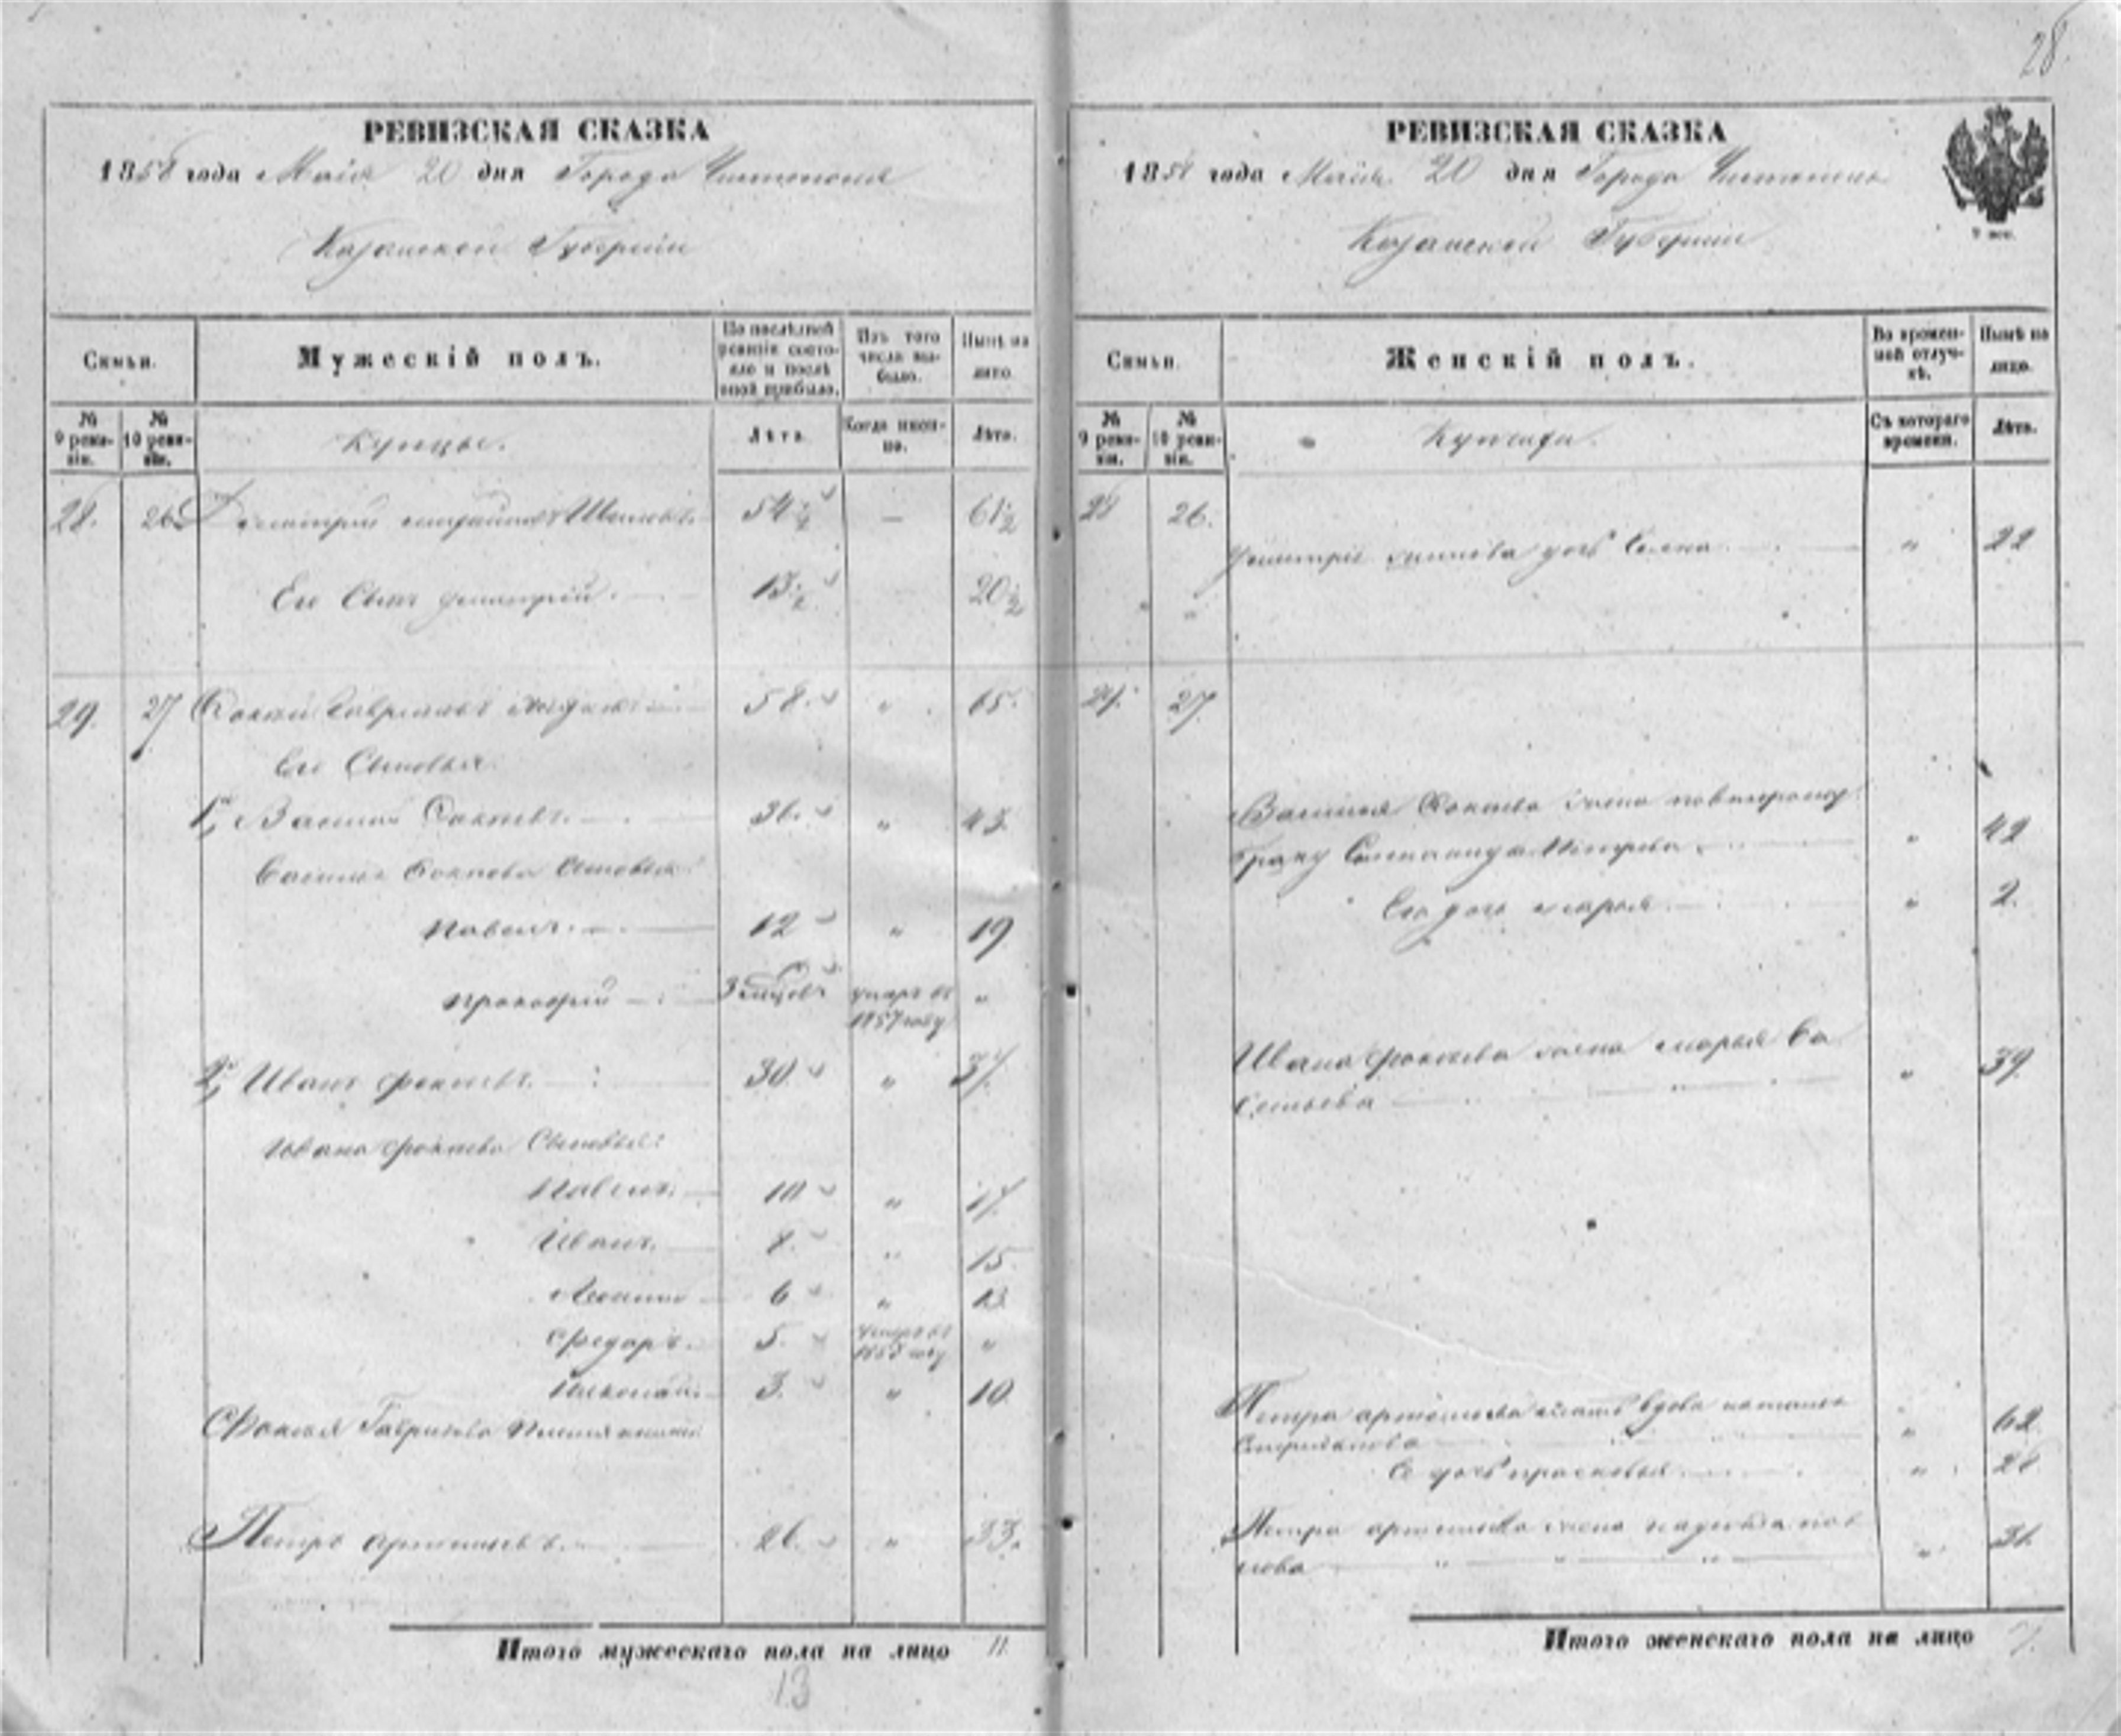 РЕВИЗСКАЯ СКАЗКА
1858 года Маія 20 дня Города Чистополя
Казанской Губерніи
Семьи.
Мужескій полъ.
По послѣдней ревизіи состояло и послѣ оной прибыло.
Изъ того числа выбыло.
Нынѣ на лицо.
№ 9 ревизіи.
№ 10 ревизіи.
Купцы.
Лѣта.
Когда именно.
Лѣта.
28. 26. Дмитрій 54 1/2 — 61 1/2
Его Сынъ Дмитрій. 13 1/2 20 1/2
29. 27 Фокей Гавриловъ 58. " 65.
Его Сыновья:
1, Василій Фокеевъ. 36. " 43.
Василья Фокеева Сыновья:
Павелъ. 12 " 19
Прокофій 3 умеръ въ 1857 году "
2, Иванъ Фокеевъ. 30. " 37.
Ивана Фокеева Сыновья:
Павелъ. 10 " 17.
Иванъ. 8. " 15.
6 " 13
Федоръ. 5. умеръ въ году "
Николай. 3. " 10.
Фокея Гаврилова племянникъ
Петръ Артемьевъ. 26. " 33.
Итого мужескаго пола на лицо 11.
13
28.
РЕВИЗСКАЯ СКАЗКА
1858 года Маія 20 дня Города Чистополя
Казанской Губерніи
Семьи.
Женскій полъ.
Во временной отлучкѣ.
Нынѣ на лицо.
№ 9 ревизіи.
№ 10 ревизіи.
Купчихи.
Съ котораго времени.
Лѣта.
28 26.
Дмитрія дочь Елена " 22
29. 27.
Василья Фокеева жена
браку Петрова " 42
Его дочь Марья " 2.
Ивана Фокеева жена Марья Ва
сильева " 39.
Петра Артемьева мать вдова
" 62.
Ее дочь Прасковья " 28.
Петра Артемьева жена
нова " 31.
Итого женскаго пола на лицо 7.